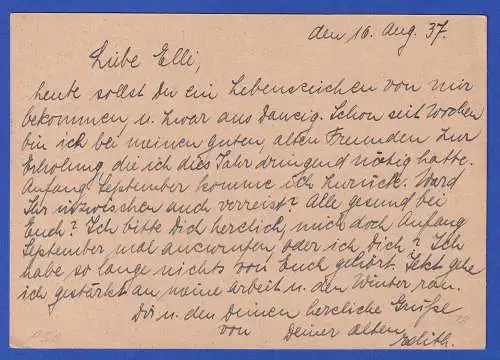 den 16. Aug. 37.
Liebe Elli,
heute sollst Du ein Lebenszeichen von mir
bekommen, u. zwar aus Danzig. Schon seit Wochen
bin ich bei meinen guten, alten Freunden zur
Erholung, die ich dies Jahr dringend nötig hatte.
Anfang September komme ich zurück. Ward
Ihr inzwischen auch verreist? Alle gesund bei
Euch? Ich bitte Dich herzlich, mich doch Anfang
September mal anzurufen, oder ich Dich? Ich
habe so lange nichts von Euch gehört. Jetzt gehe
ich gestärkt an meine Arbeit u. den Winter ran.
Dir u. den Deinen herzliche Grüße
von Deiner alten
Edith.